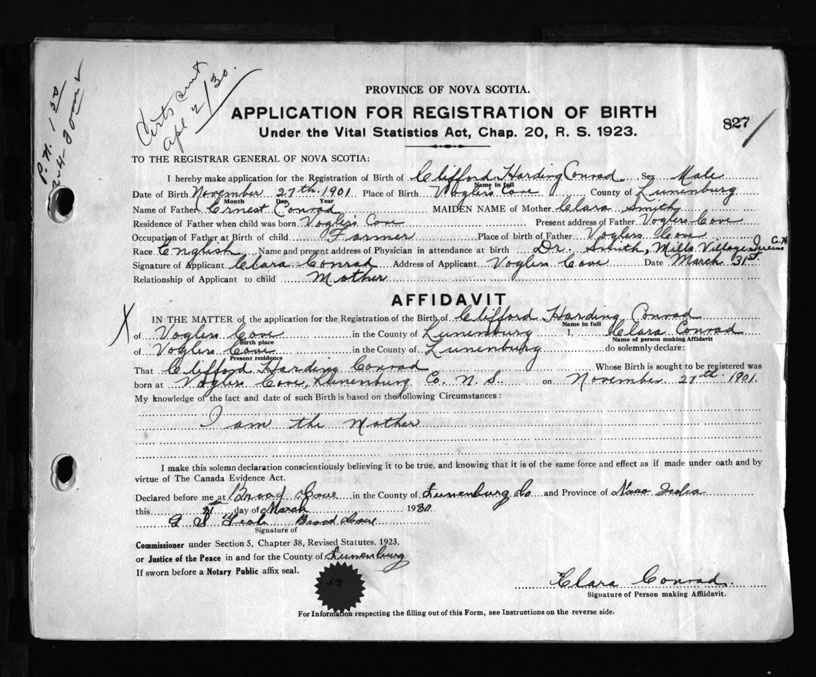 Certs sent
Apl 2/30.
P.H. 1 50
PROVINCE OF NOVA SCOTIA.
APPLICATION FOR REGISTRATION OF BIRTH
Under the Vital Statistics Act, Chap. 20, R. S. 1923.
827
TO THE REGISTRAR GENERAL OF NOVA SCOTIA:
I hereby make application for the Registration of Birth of Clifford Harding Conrad Sex Male
Name in full
Date of Birth November 27th. 1901 Place of Birth Voglers Cove County of Lunenburg
Month Day Year
Name of Father Ernest Conrad MAIDEN NAME of Mother Clara Smith
Residence of Father when child was born Vogler's Cove Present address of Father Voglers Cove
Occupation of Father at Birth of child Farmer Place of birth of Father Voglers Cove
Race English Name and present address of Physician in attendance at birth Dr. Smith, Mills Village Queens Co.
Signature of Applicant Clara Conrad Address of Applicant Voglers Cove Date March 31st
Relationship of Applicant to child Mother
AFFIDAVIT
IN THE MATTER of the application for the Registration of the Birth of Clifford Harding Conrad
Name in full
X
of Voglers Cove in the County of Lunenburg I, Clara Conrad
Birth place Name of person making Affidavit
of Voglers Cove in the County of Lunenburg do solemnly declare:
Present residence
That Clifford Harding Conrad Whose Birth is sought to be registered was
born at Voglers Cove, Lunenburg Co. N.S. on November 27th. 1901.
My knowledge of the fact and date of such Birth is based on the following Circumstances:
I am the Mother
I make this solemn declaration conscientiously believing it to be true, and knowing that it is of the same force and effect as if made under oath and by
virtue of The Canada Evidence Act.
Declared before me at Broad Cove in the County of Lunenburg Co and Province of Nova Scotia
this 31 day of March 1930.
Broad Cove
Signature of
Commissioner under Section 5, Chapter 38, Revised Statutes, 1923.
or Justice of the Peace in and for the County of Lunenburg
If sworn before a Notary Public affix seal.
Clara Conrad.
Signature of Person making Affidavit.
For Information respecting the filling out of this Form, see Instructions on the reverse side.